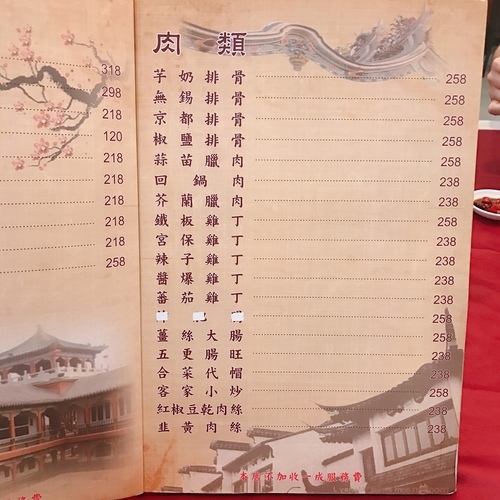 318
298
218
120
218
218
218
218
218
258
肉類
芋奶排骨 258
無錫排骨 258
京都排骨 258
椒鹽排骨 258
蒜苗臘肉 258
回鍋肉 238
芥蘭臘肉 238
鐵板雞丁 258
宮保雞丁 238
辣子雞丁 238
醬爆雞丁 238
蕃茄雞丁 238
258
薑絲大腸 238
五更腸旺 238
合菜代帽 238
客家小炒 238
紅椒豆乾肉絲 238
韭黃肉絲 238
本店不加收一成服務費
務費